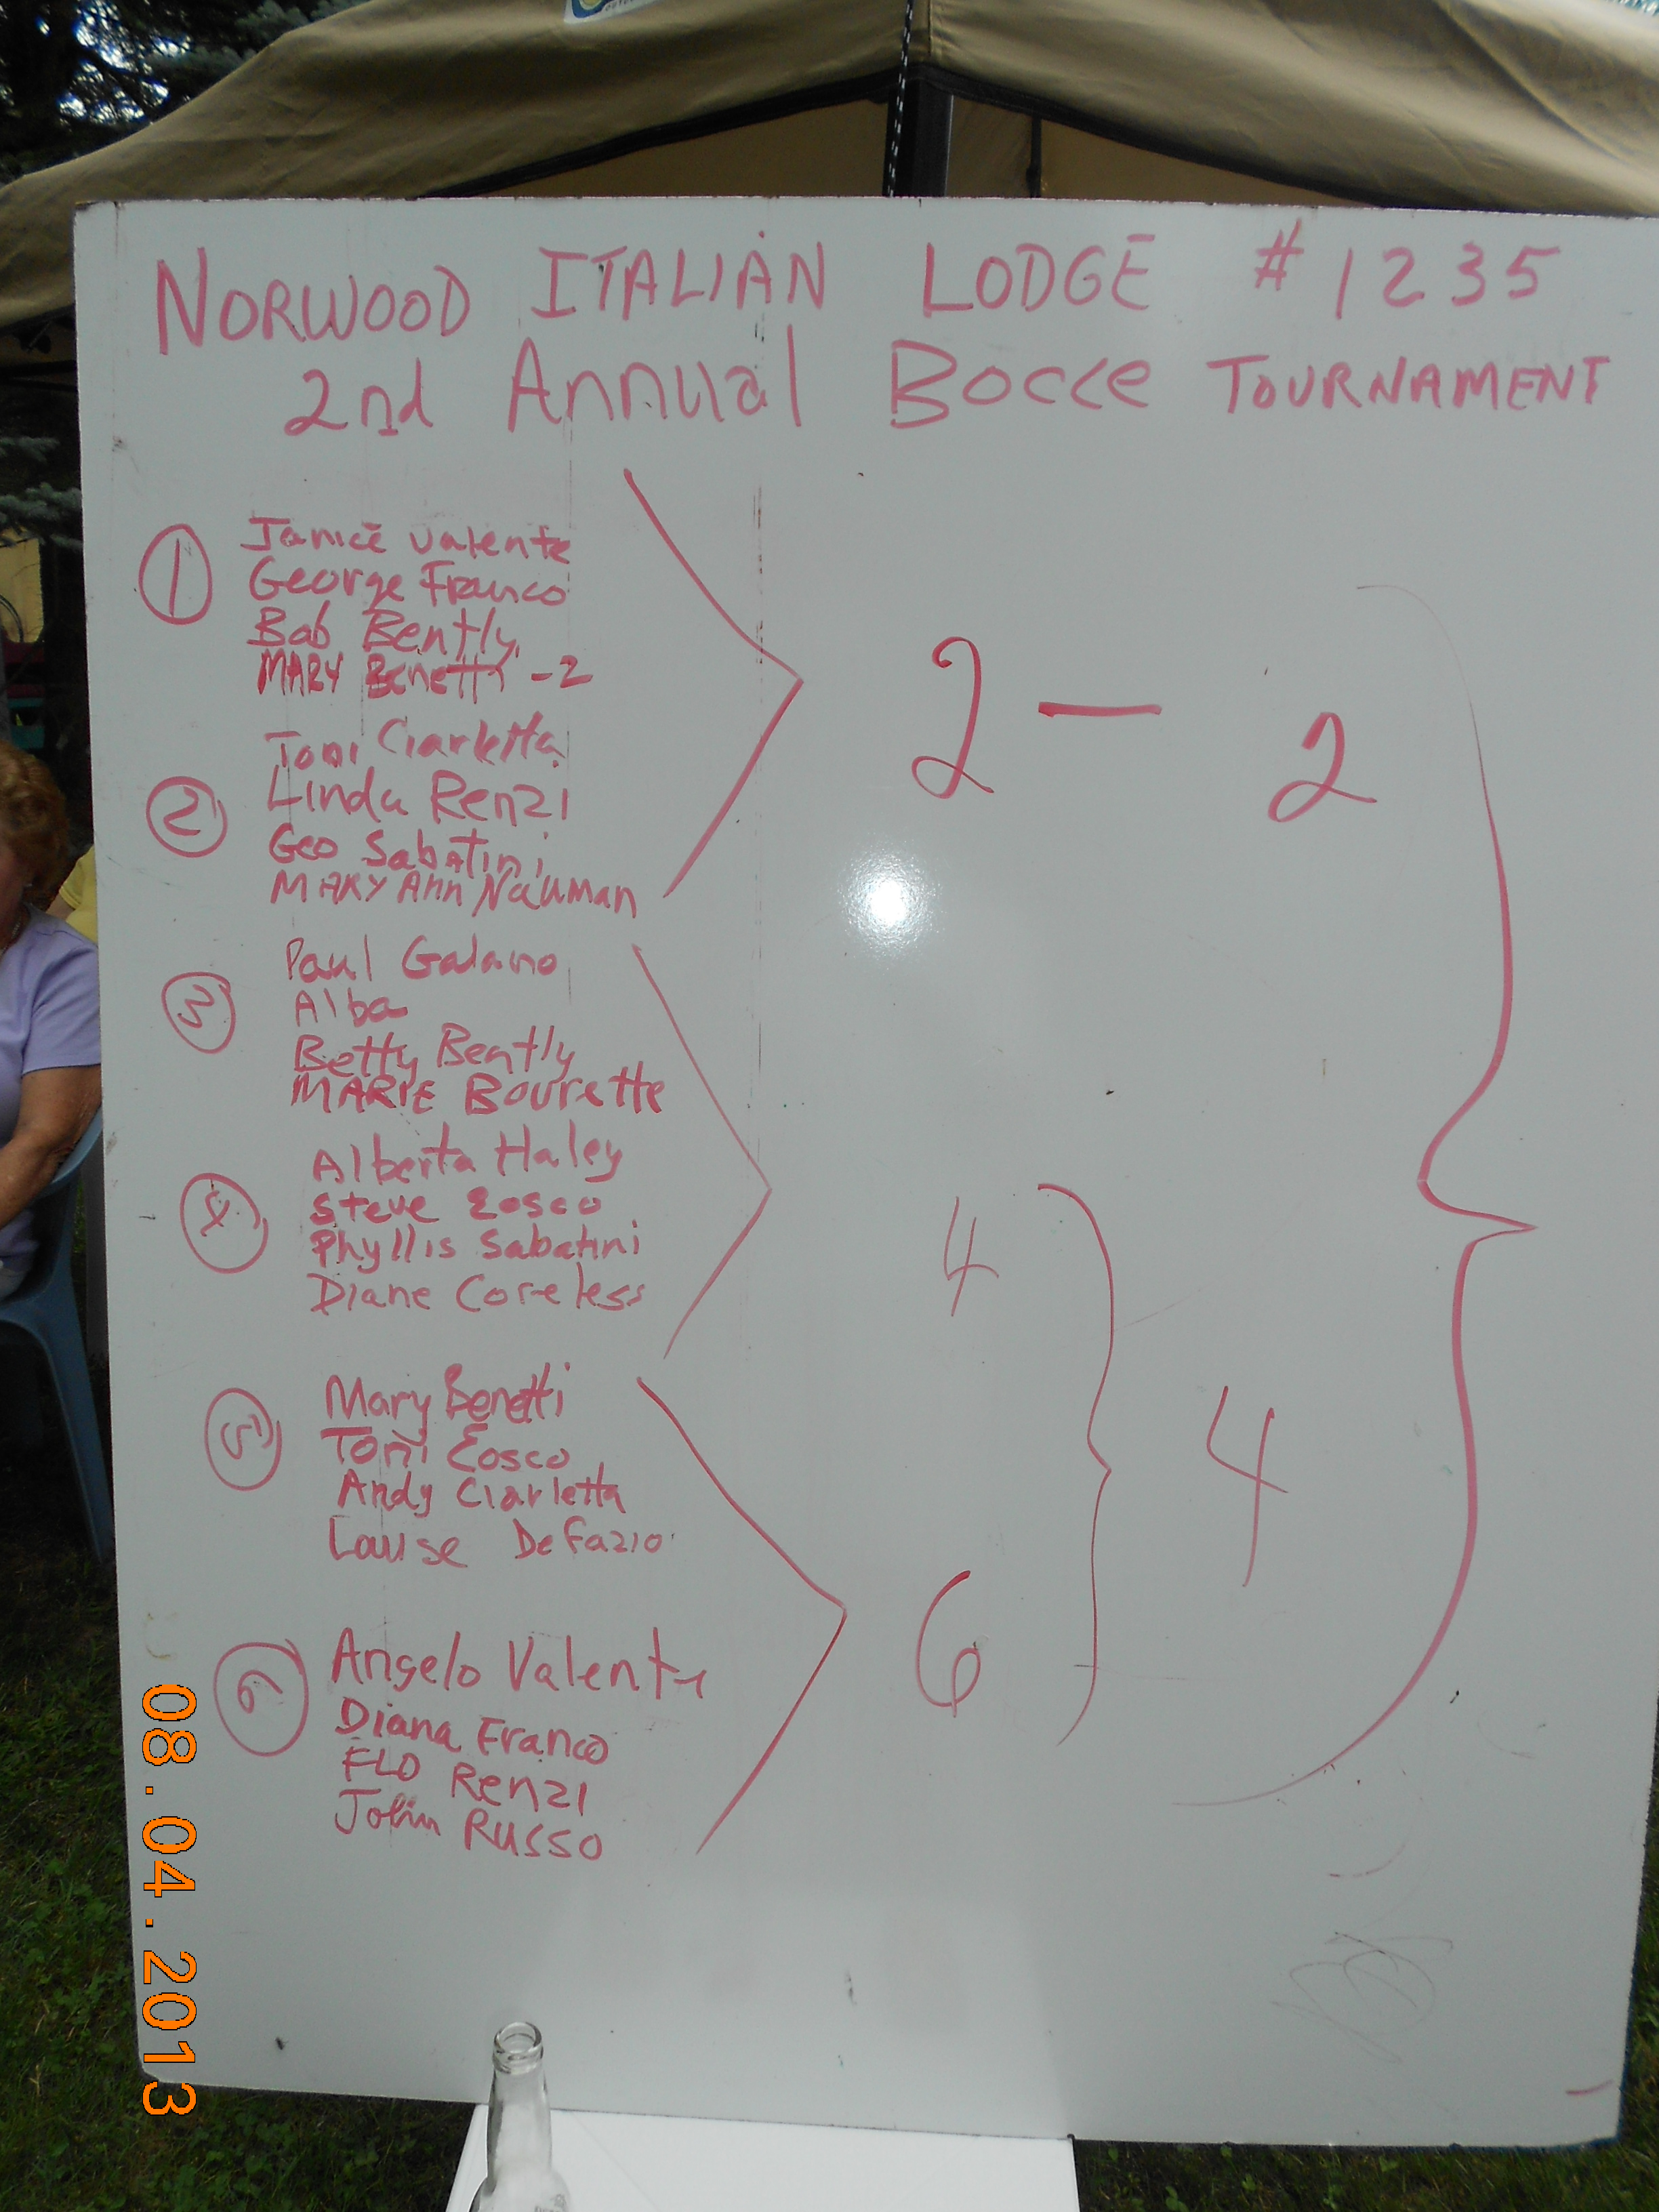 NORWOOD ITALIAN LODGE #1235
2nd Annual Bocce TOURNAMENT
1
Janice Valente
George Franco
Bob Bently
MARY Benetti -2
2
Toni Ciarletta
Linda Renzi
Geo Sabatini
MARY Ann Nauman
3
Paul Galano
Alba
Betty Bently
MARIE Bourette
4
Alberta Haley
Steve Eosco
Phyllis Sabatini
Diane Coreless
5
Mary Benetti
Toni Eosco
Andy Ciarletta
Louise DeFazio
6
Angelo Valente
Diana Franco
FLO Renzi
John Russo
2 — 2
4
4
6
08.04.2013